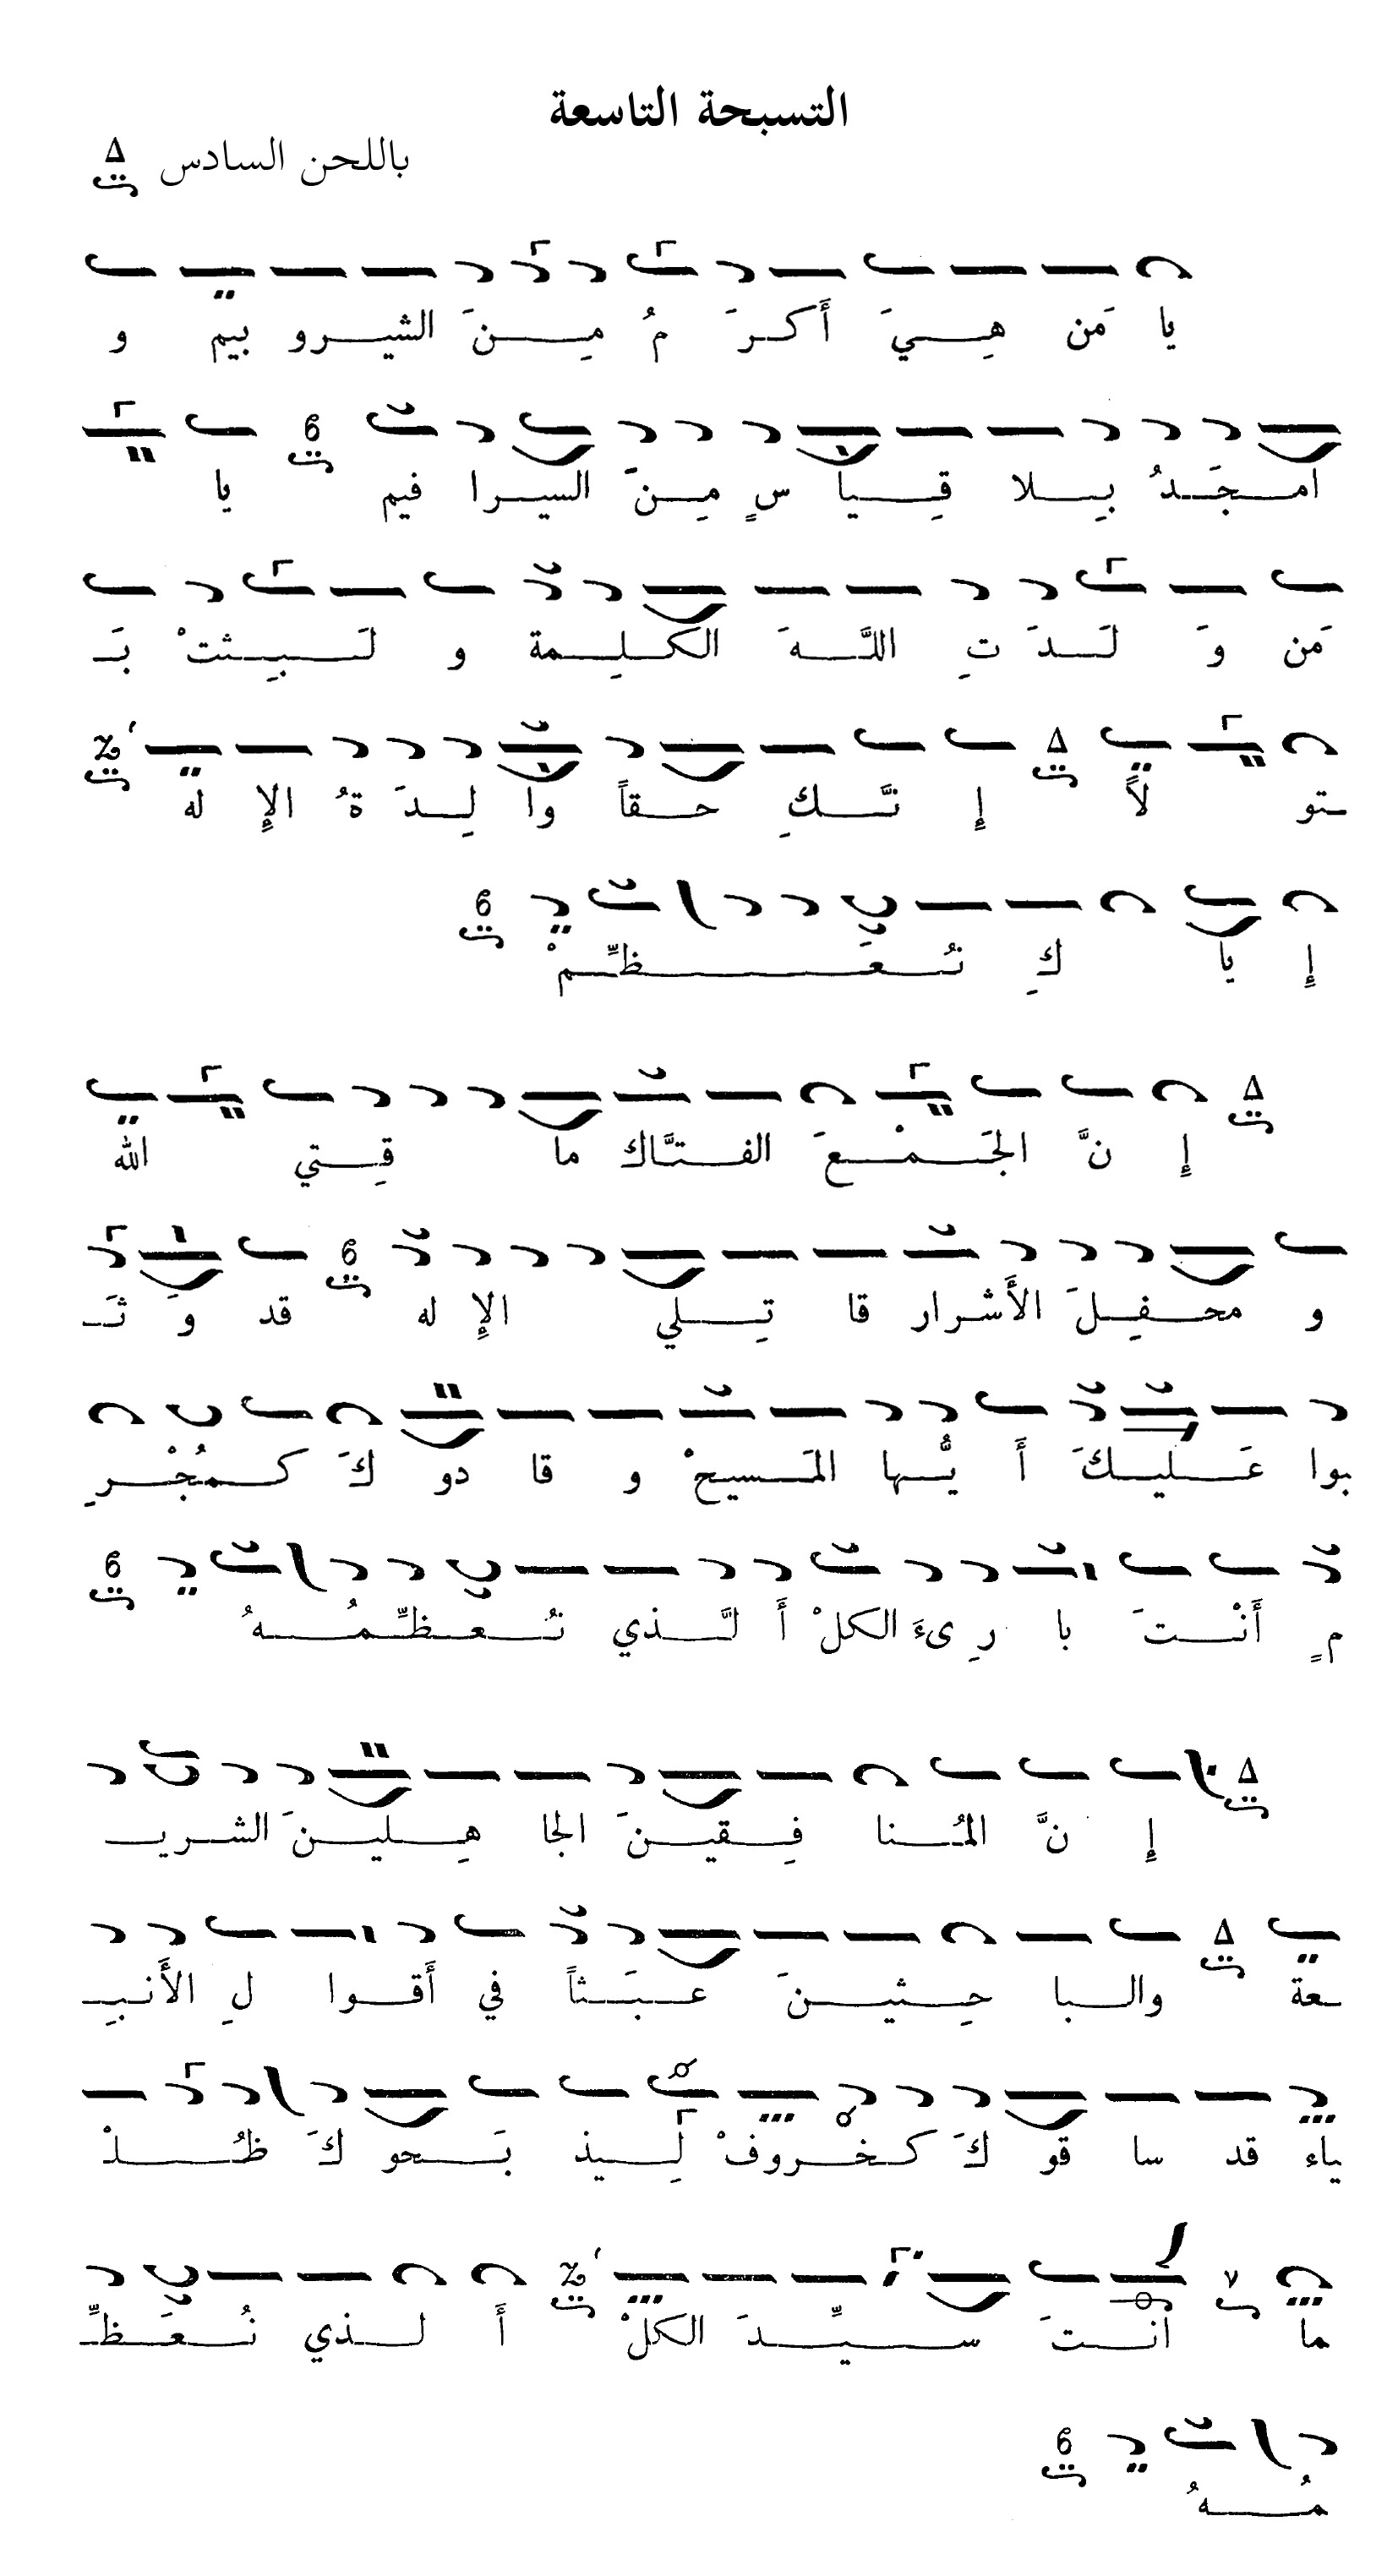 التسبحة التاسعة
باللحن السادس
يا مَن هِيَ أَكرَمُ مِنَ الشيروبيم و
امجَدُ بِلا قِياسٍ مِنَ السيرافيم يا
مَن وَلَدَتِ اللَّهَ الكَلِمة و لَبِثتْ بَـ
ـتولاً إِنَّكِ حقاً والِدَةُ الإِله
إِياكِ نُعَظِّمْ
إِنَّ الجَمْعَ الفتَّاك ماقِتي الله
و محفِلَ الأَشرار قاتِلي الإِله قد وَثَـ
ـبوا عَليكَ أَيُّها المَسيحْ و قادوكَ كمُجْرِ
مٍ أَنْتَ بارِىءَ الكلْ أَلَّذي نُعظِّمُهُ
إِنَّ المُنافِقينَ الجاهِلينَ الشريـ
ـعة والباحِثينَ عبَثاً في أَقوالِ الأَنبِـ
ـياء قد ساقوكَ كخْروفْ لِيذبَحوكَ ظُلْ
ما انتَ سيِّدَ الكلْ أَلذي نُعَظِّـ
ـمُهُ